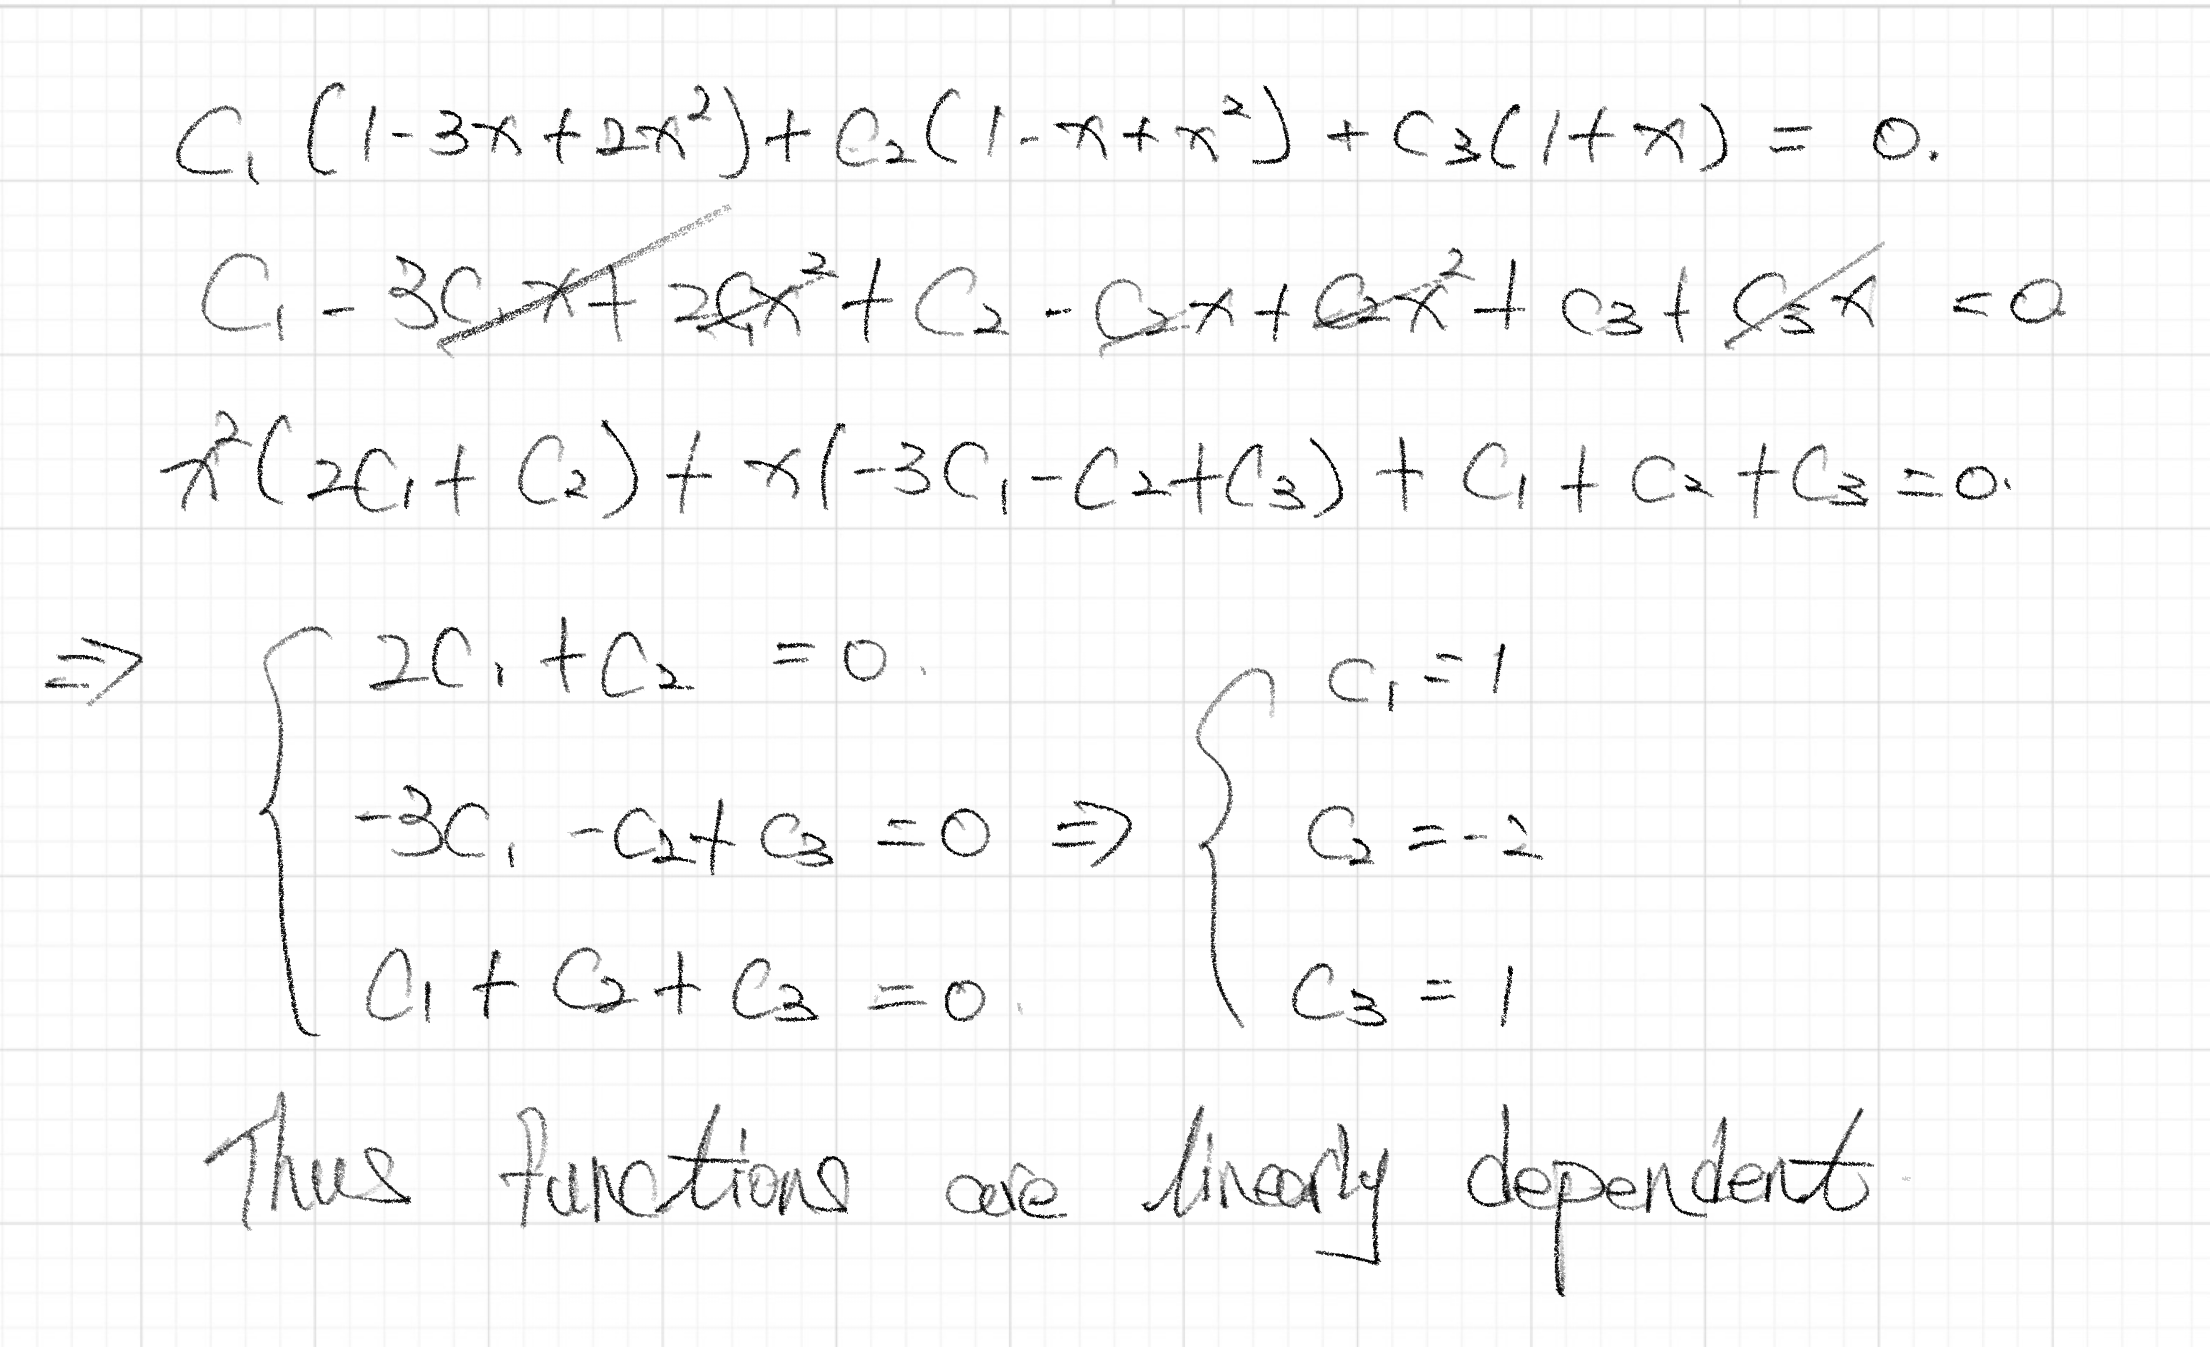 C₁(1-3x+2x²)+C₂(1-x+x²)+C₃(1+x)=0.
C₁-3C₁x+2C₁x²+C₂-C₂x+C₂x²+C₃+C₃x=0
x²(2C₁+C₂)+x(-3C₁-C₂+C₃)+C₁+C₂+C₃=0.
⇒ { 2C₁+C₂=0. { C₁=1
-3C₁-C₂+C₃=0 ⇒ C₂=-2
C₁+C₂+C₃=0. C₃=1
Thus functions are linearly dependent.